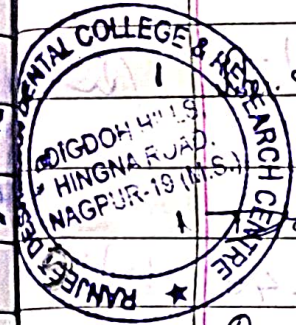 RANJEET DES DENTAL COLLEGE & RESEARCH CENTRE
DIGDOH HILLS
HINGNA ROAD.
NAGPUR-19 (M.S.)